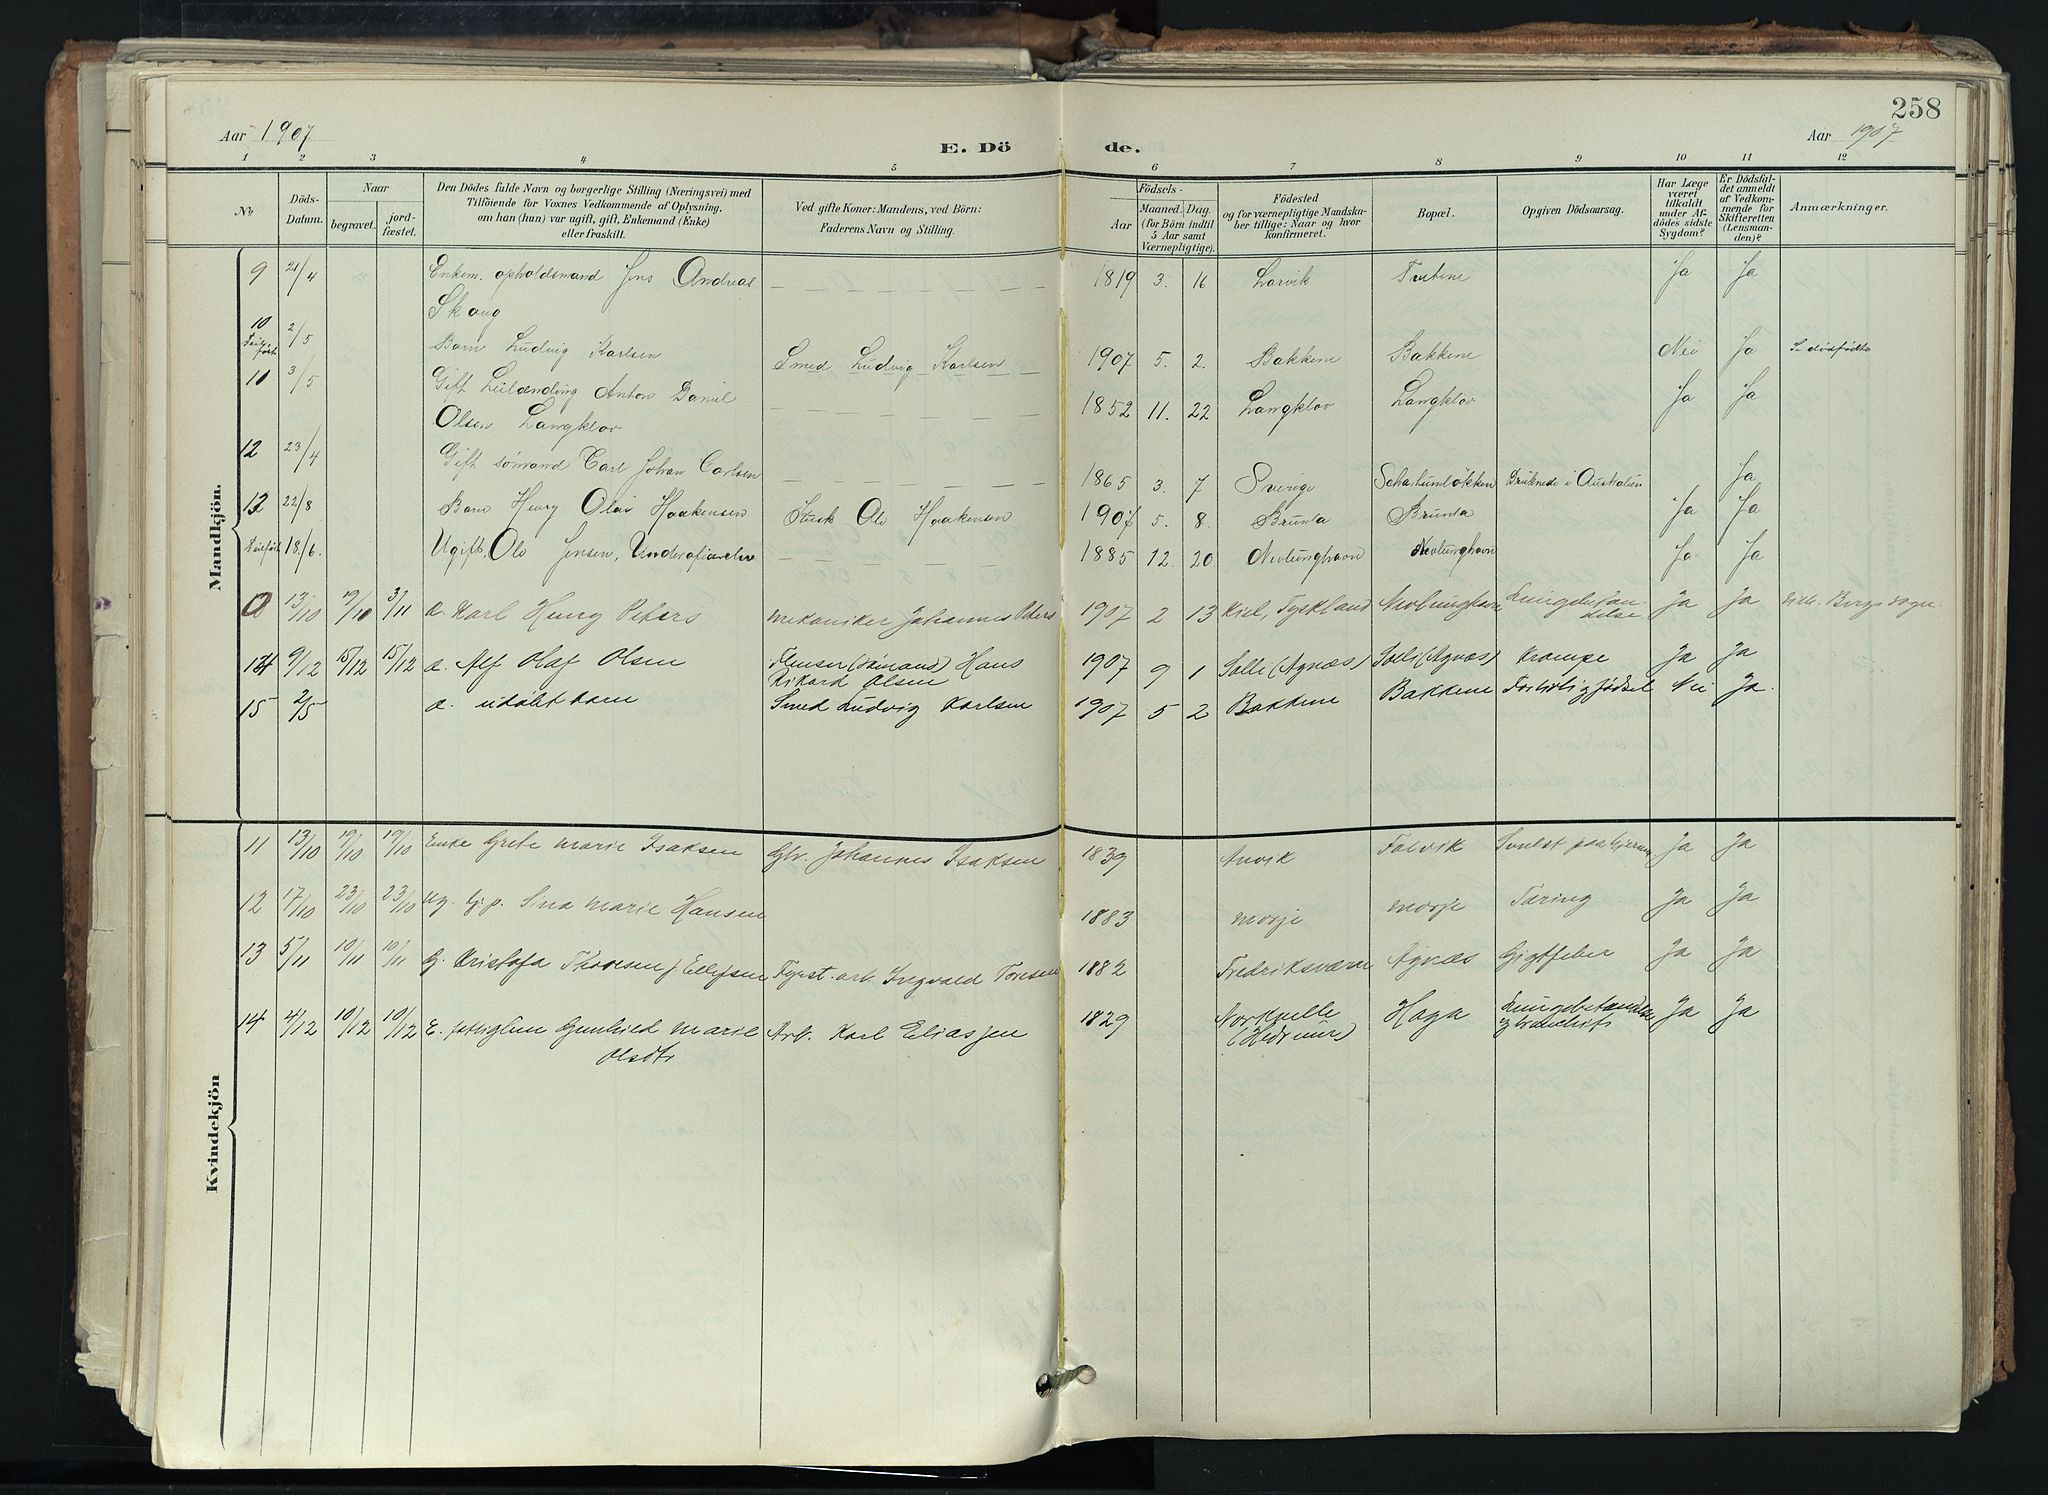 258
Aar 1907
E. Dö
de.
Aar 1907
1 2 3 4 5 6 7 8 9 10 11 12
No
Döds-
Datum.
Naar
begravet.
jord-
fæstet.
Den Dödes fulde Navn og borgerlige Stilling (Næringsvei) med
Tilföiende for Voxnes Vedkommende af Oplysning,
om han (hun) var ugift, gift, Enkemand (Enke)
eller fraskilt.
Ved gifte Koner: Mandens, ved Börn:
Faderens Navn og Stilling.
Födsels-
Aar
Maaned. Dag.
(for Börn indtil
5 Aar samt
Værnepligtige).
Födested
og for værnepligtige Mandska-
ber tillige: Naar og hvor
konfirmeret.
Bopæl.
Opgiven Dödsaarsag.
Har Læge
været
tilkaldt
under Af-
dödes sidste
Sygdom?
Er Dödsfal-
det anmeldt
af Vedkom-
mende for
Skifteretten
(Lensman-
den)?
Anmærkninger.
Mandkjön.
9 21/4 Enkem. opholdsmand Jens Andreas — — — 1819 3. 16 Larvik Tvetene Ja Ja
Skaug
10 2/5 Barn Ludvig Karlsen Smed Ludvig Karlsen — 1907 5. 2. Bakkene Bakkene Nei Ja Se dødfødte
Feilført
10 3/5 Gift Leilænding Anton Daniel — — — 1852 11. 22 Langklov Langklov Ja Ja
Olsen Langklov
12 23/4 Gift sømand Carl Johan Carlsen — — — 1865 3. 7 Sverige Druknede i Australien Ja
12 22/8 Barn Henry Olai Haakensen Ole Haakensen 1907 5. 8. Brunla Brunla Ja Ja
Feilført 18/6. Ugift. Ole Jensen, — — — 1885 12. 20 Nevlunghavn Nevlunghavn Ja. Ja
13/10 19/10 3/11 a. Karl Henry Peters mekaniker Johannes Peters 1907 2 13 Kiel, Tyskland Nevlunghavn Lungebetæn-
delse Ja Ja Bergs sogn.
14 9/12 15/12 15/12 a. Alf Olaf Olsen (sømand) Hans
Rikard Olsen 1907 9 1 Solli (Agnæs) Solli (Agnæs) Krampe Ja Ja
15 2/5 a. udøbt barn Smed Ludvig Karlsen 1907 5 2 Bakkene Bakkene For hurtig fødsel Nei Ja.
Kvindekjön
11 13/10 19/10 19/10 Enke Grete Marie Isaksen Gbr. Johannes Isaksen 1839 Anvik Folvik Ja Ja
12 17/10 23/10 23/10 Ug. tj.p. Sina Marie Hansen 1883 Mosje Mosje Tæring Ja Ja
13 5/11 10/11 10/11 G. Kristofa Thoresen f. Ellefsen Fyrst. arb. Ingvald Toresen 1882 Fredriksværn Agnæs Gigtfeber Ja Ja
14 4/12 10/12 10/12 E. fattiglem Gunhild Marie Arb. Karl Eliasjen 1829 (Hedrum) Haga Lungebetændelse Ja Ja
Olsdtr